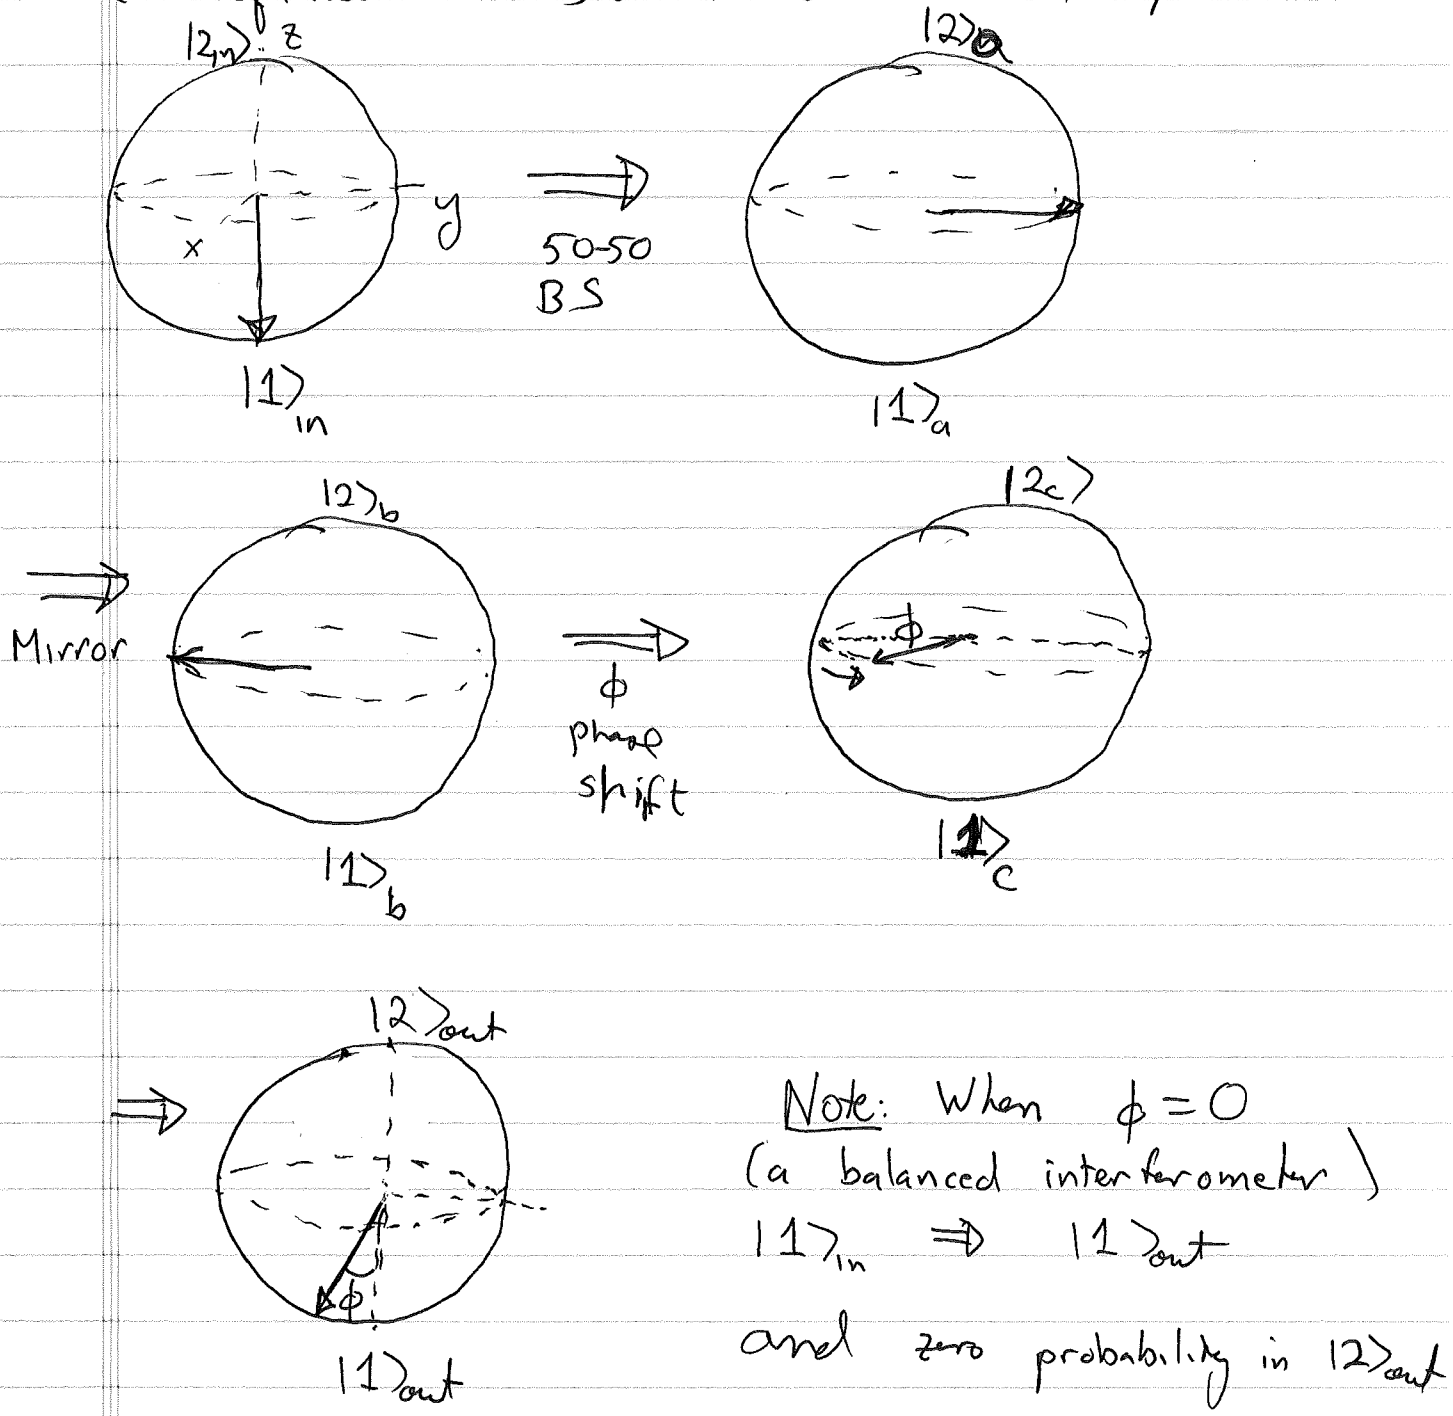 |2in⟩ z
|2⟩a
x
y
50-50
BS
|1⟩in
|1⟩a
|2⟩b
|2c⟩
Mirror
ϕ
phase
shift
ϕ
|1⟩b
|1⟩c
|2⟩out
ϕ
|1⟩out
Note: When ϕ = 0
(a balanced interferometer)
|1⟩in ⇒ |1⟩out
and zero probability in |2⟩out